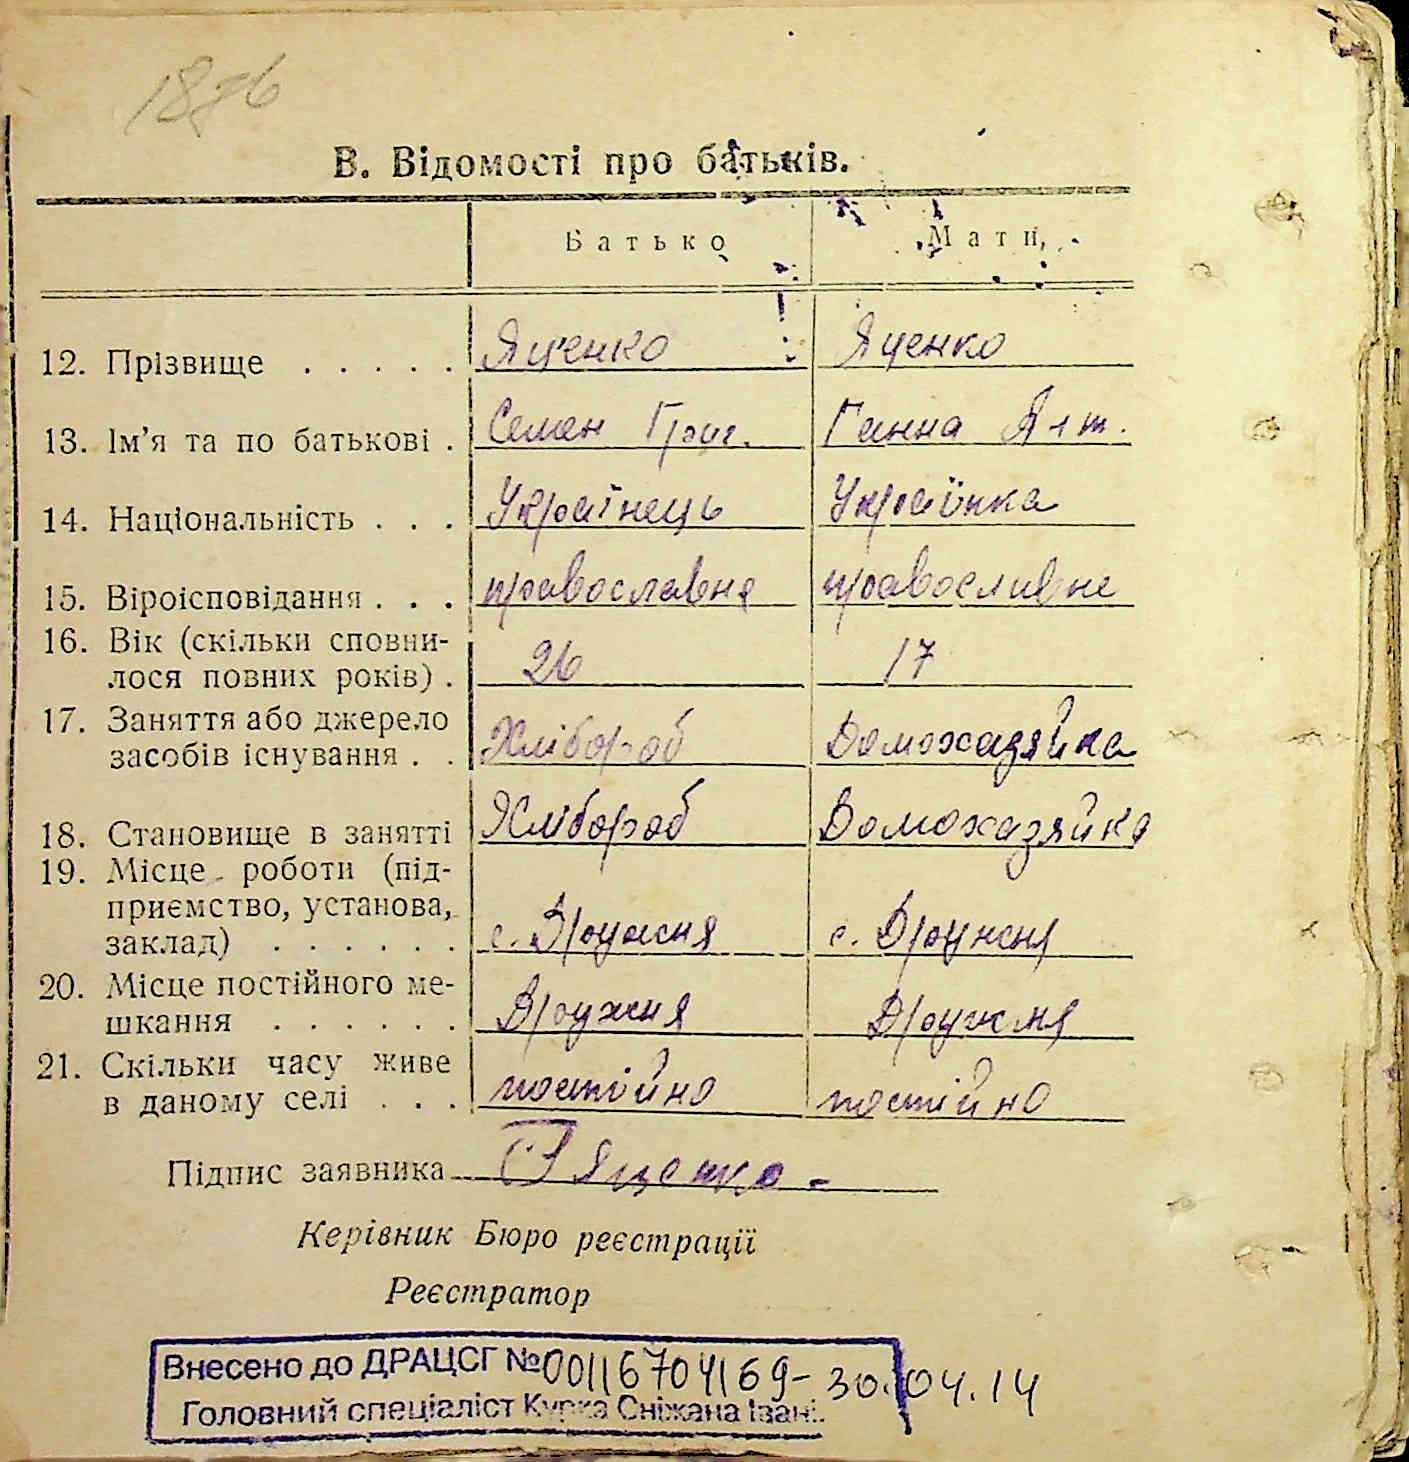 1876
В. Відомості про батьків.
Батько Мати
12. Прізвище . . . . . Яценко Яценко
13. Ім’я та по батькові . Семен Григ. Ганна
14. Національність . . . Українець Українка
15. Віроісповідання . . . православне православне
16. Вік (скільки сповни-
лося повних років) . 26 17
17. Заняття або джерело
засобів існування . . Хлібороб Домохазяйка
18. Становище в занятті Хлібороб Домохазяйка
19. Місце роботи (під-
приємство, установа,
заклад) . . . . . . с. Дружня с. Дружня
20. Місце постійного ме-
шкання . . . . . . Дружня Дружня
21. Скільки часу живе
в даному селі . . . постійно постійно
Підпис заявника Яценко
Керівник Бюро реєстрації
Реєстратор
Внесено до ДРАЦСГ №00116704169- 30.04.14
Головний спеціаліст Курка Сніжана Івані.